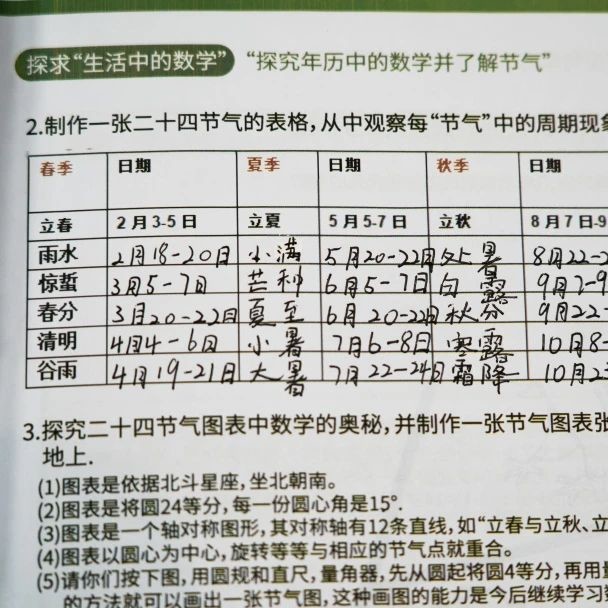 探求“生活中的数学” “探究年历中的数学并了解节气”
2.制作一张二十四节气的表格,从中观察每“节气”中的周期现象
春季 日期 夏季 日期 秋季 日期
立春 2月3-5日 立夏 5月5-7日 立秋 8月7日-9
雨水 2月18-20日 小满 5月20-22日 处暑 8月22-2
惊蛰 3月5-7日 芒种 6月5-7日 白露 9月7-9
春分 3月20-22日 夏至 6月20-22日 秋分 9月22-
清明 4月4-6日 小暑 7月6-8日 寒露 10月8-
谷雨 4月19-21日 大暑 7月22-24日 霜降 10月23
3.探究二十四节气图表中数学的奥秘,并制作一张节气图表张
地上.
(1)图表是依据北斗星座,坐北朝南。
(2)图表是将圆24等分,每一份圆心角是15°.
(3)图表是一个轴对称图形,其对称轴有12条直线,如“立春与立秋、立
(4)图表以圆心为中心,旋转等等与相应的节气点就重合。
(5)请你们按下图,用圆规和直尺,量角器,先从圆起将圆4等分,再用量
的方法就可以画出一张节气图,这种画图的能力是今后继续学习